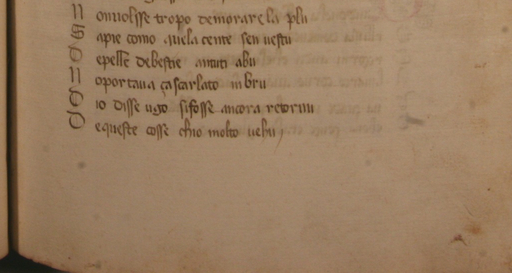 N onuolisse tropo demorare la plu
S apie como quela cente sen uestu
D epelle debestie antiti abu
N oportaua ça scarlato inbru
D io disse ugo sifosse ancora retornu
D equeste cosse chio molto uehu